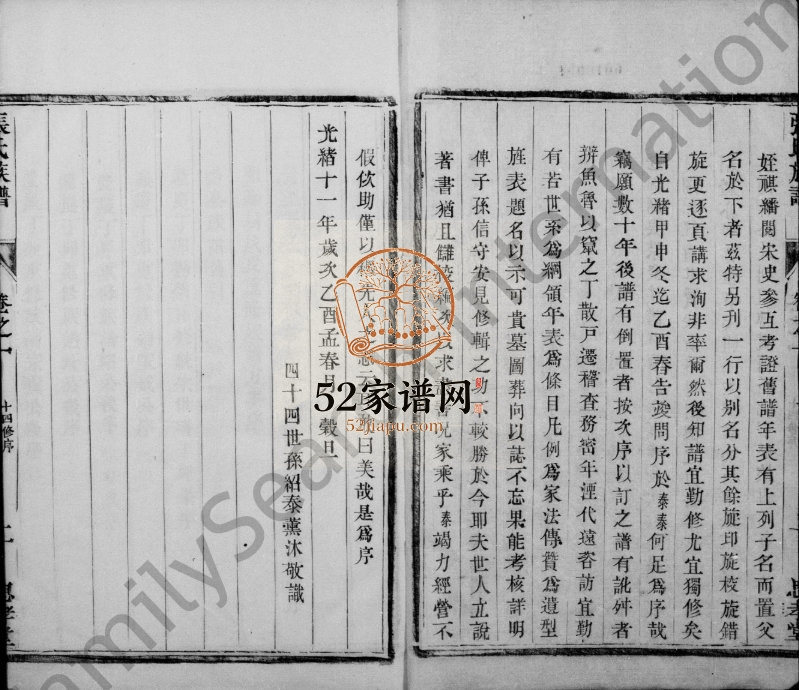 姪祺繙閱宋史參互考證舊譜年表有上列子名而置父
名於下者茲特另刊一行以别名分其餘旋印旋校旋錯
旋更逐頁講求洵非率爾然後知譜宜勤修尤宜獨修矣
自光緒甲申冬迄乙酉春告竣問序於泰泰何足爲序哉
竊願數十年後譜有倒置者按次序以訂之譜有訛舛者
辨魚魯以竄之丁散戸遷稽查務密年湮代遠咨訪宜勤
有若世系爲綱領年表爲條目凡例爲家法傳贊爲遺型
旌表題名以示可貴墓圖葬向以誌不忘果能考核詳明
俾子孫信守安見修輯之功不較勝於今耶夫世人立說
著書猶且讎校 求 況家乘乎泰竭力經營不
假佽助僅以 光 志云 敢曰美哉是爲序
光緒十一年歲次乙酉孟春月 穀旦
四十四世孫紹泰薰沐敬識
張氏族譜
卷之一
十四修序
思孝堂
52家谱网
52jiapu.com
FamilySearch International